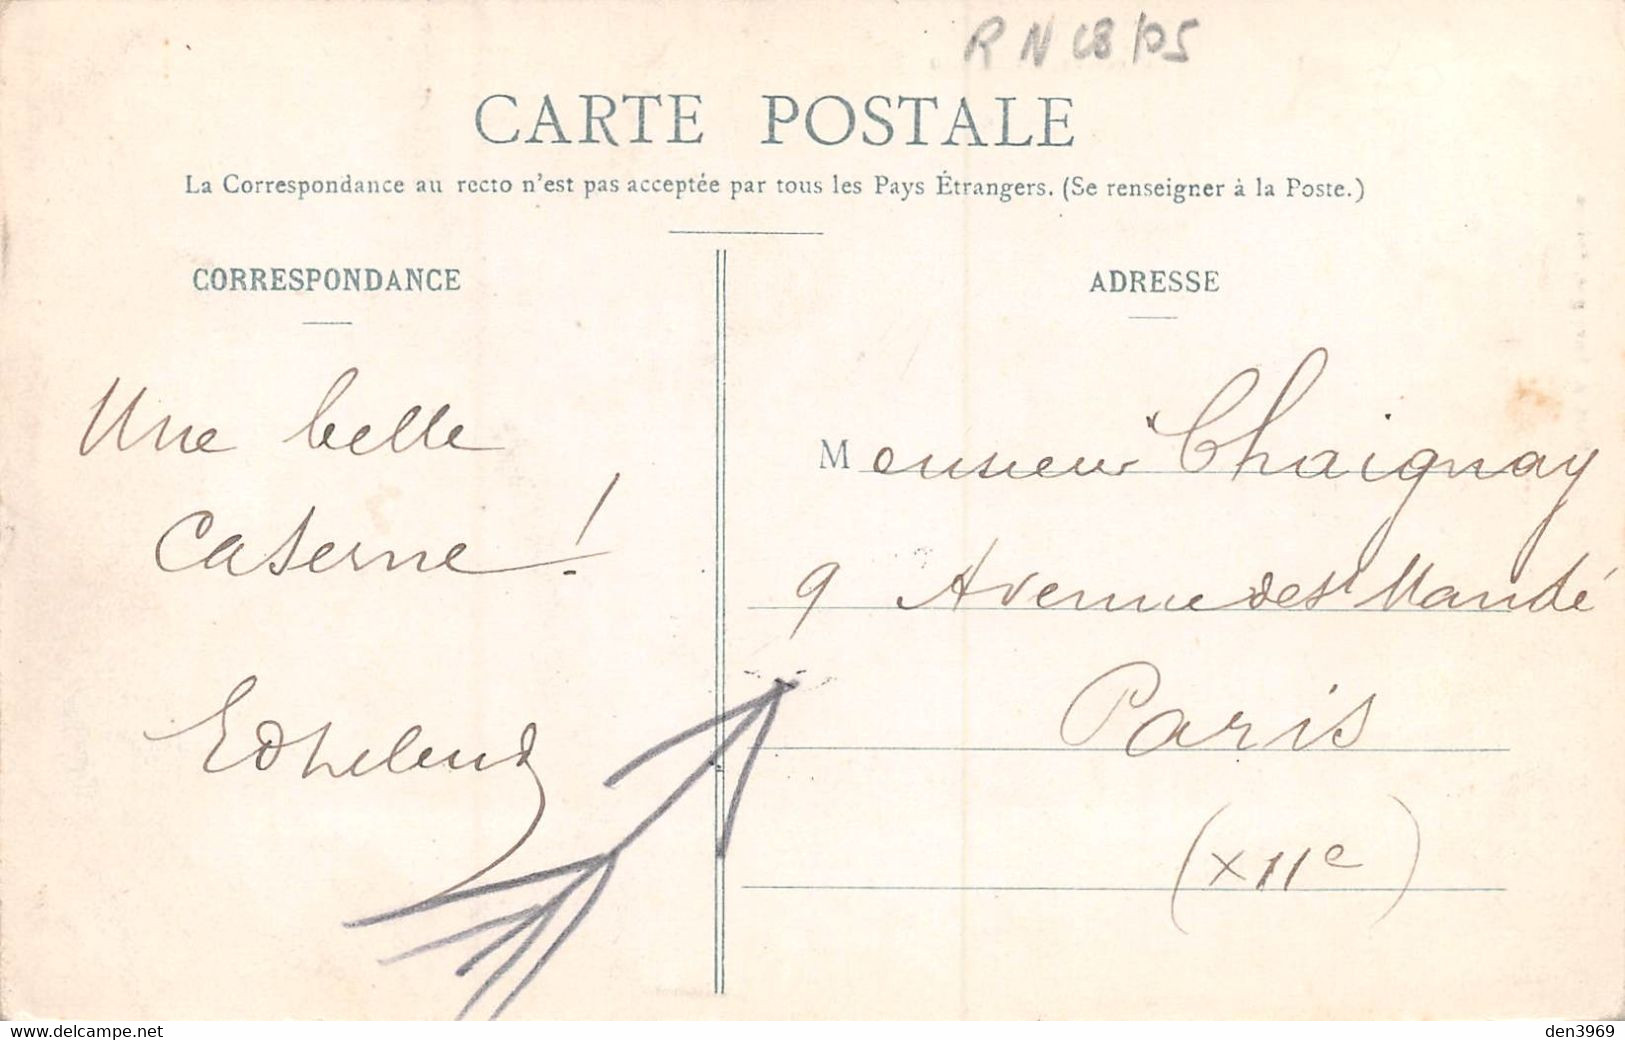 CARTE POSTALE
La Correspondance au recto n'est pas acceptée par tous les Pays Étrangers. (Se renseigner à la Poste.)
CORRESPONDANCE
Une belle
Caserne !
ADRESSE
Monsieur Chaignay
9 Avenue de St Mandé
Paris
(XIIe)
www.delcampe.net
den3969